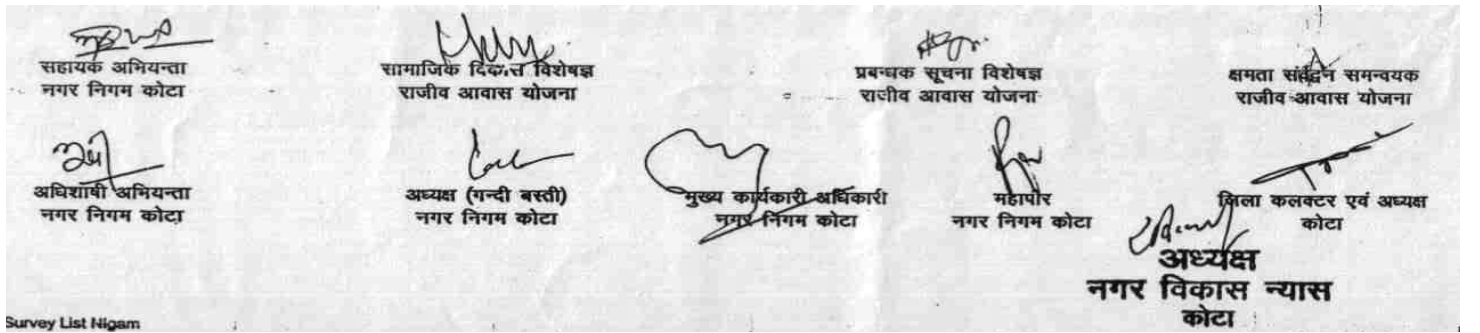 सहायक अभियन्ता
नगर निगम कोटा
सामाजिक विकास विशेषज्ञ
राजीव आवास योजना
प्रबन्धक सूचना विशेषज्ञ
राजीव आवास योजना
क्षमता संर्वद्धन समन्वयक
राजीव आवास योजना
अधिशाषी अभियन्ता
नगर निगम कोटा
अध्यक्ष (गन्दी बस्ती)
नगर निगम कोटा
मुख्य कार्यकारी अधिकारी
नगर निगम कोटा
महापौर
नगर निगम कोटा
जिला कलक्टर एवं अध्यक्ष
कोटा
अध्यक्ष
नगर विकास न्यास
कोटा
Survey List Nigam